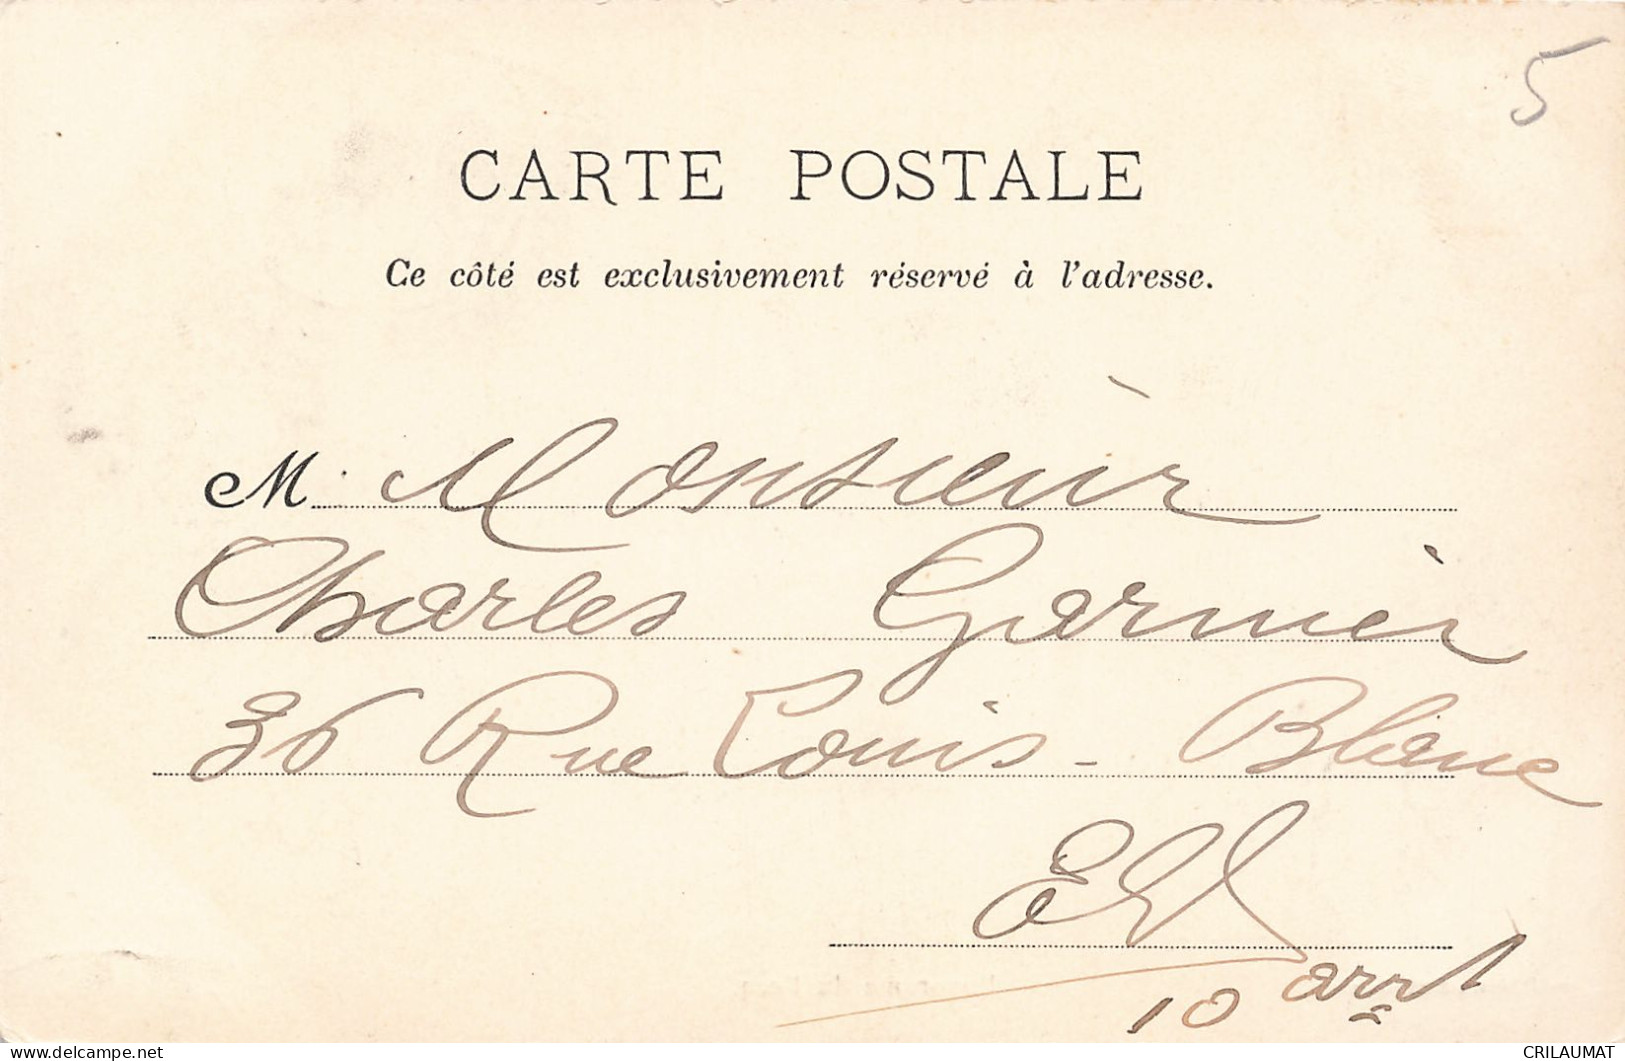 5
CARTE POSTALE
Ce côté est exclusivement réservé à l'adresse.
M. Monsieur
Charles Garnier
36 Rue Louis-Blanc
EV
10 arrt
delcampe.net
CRILAUMAT